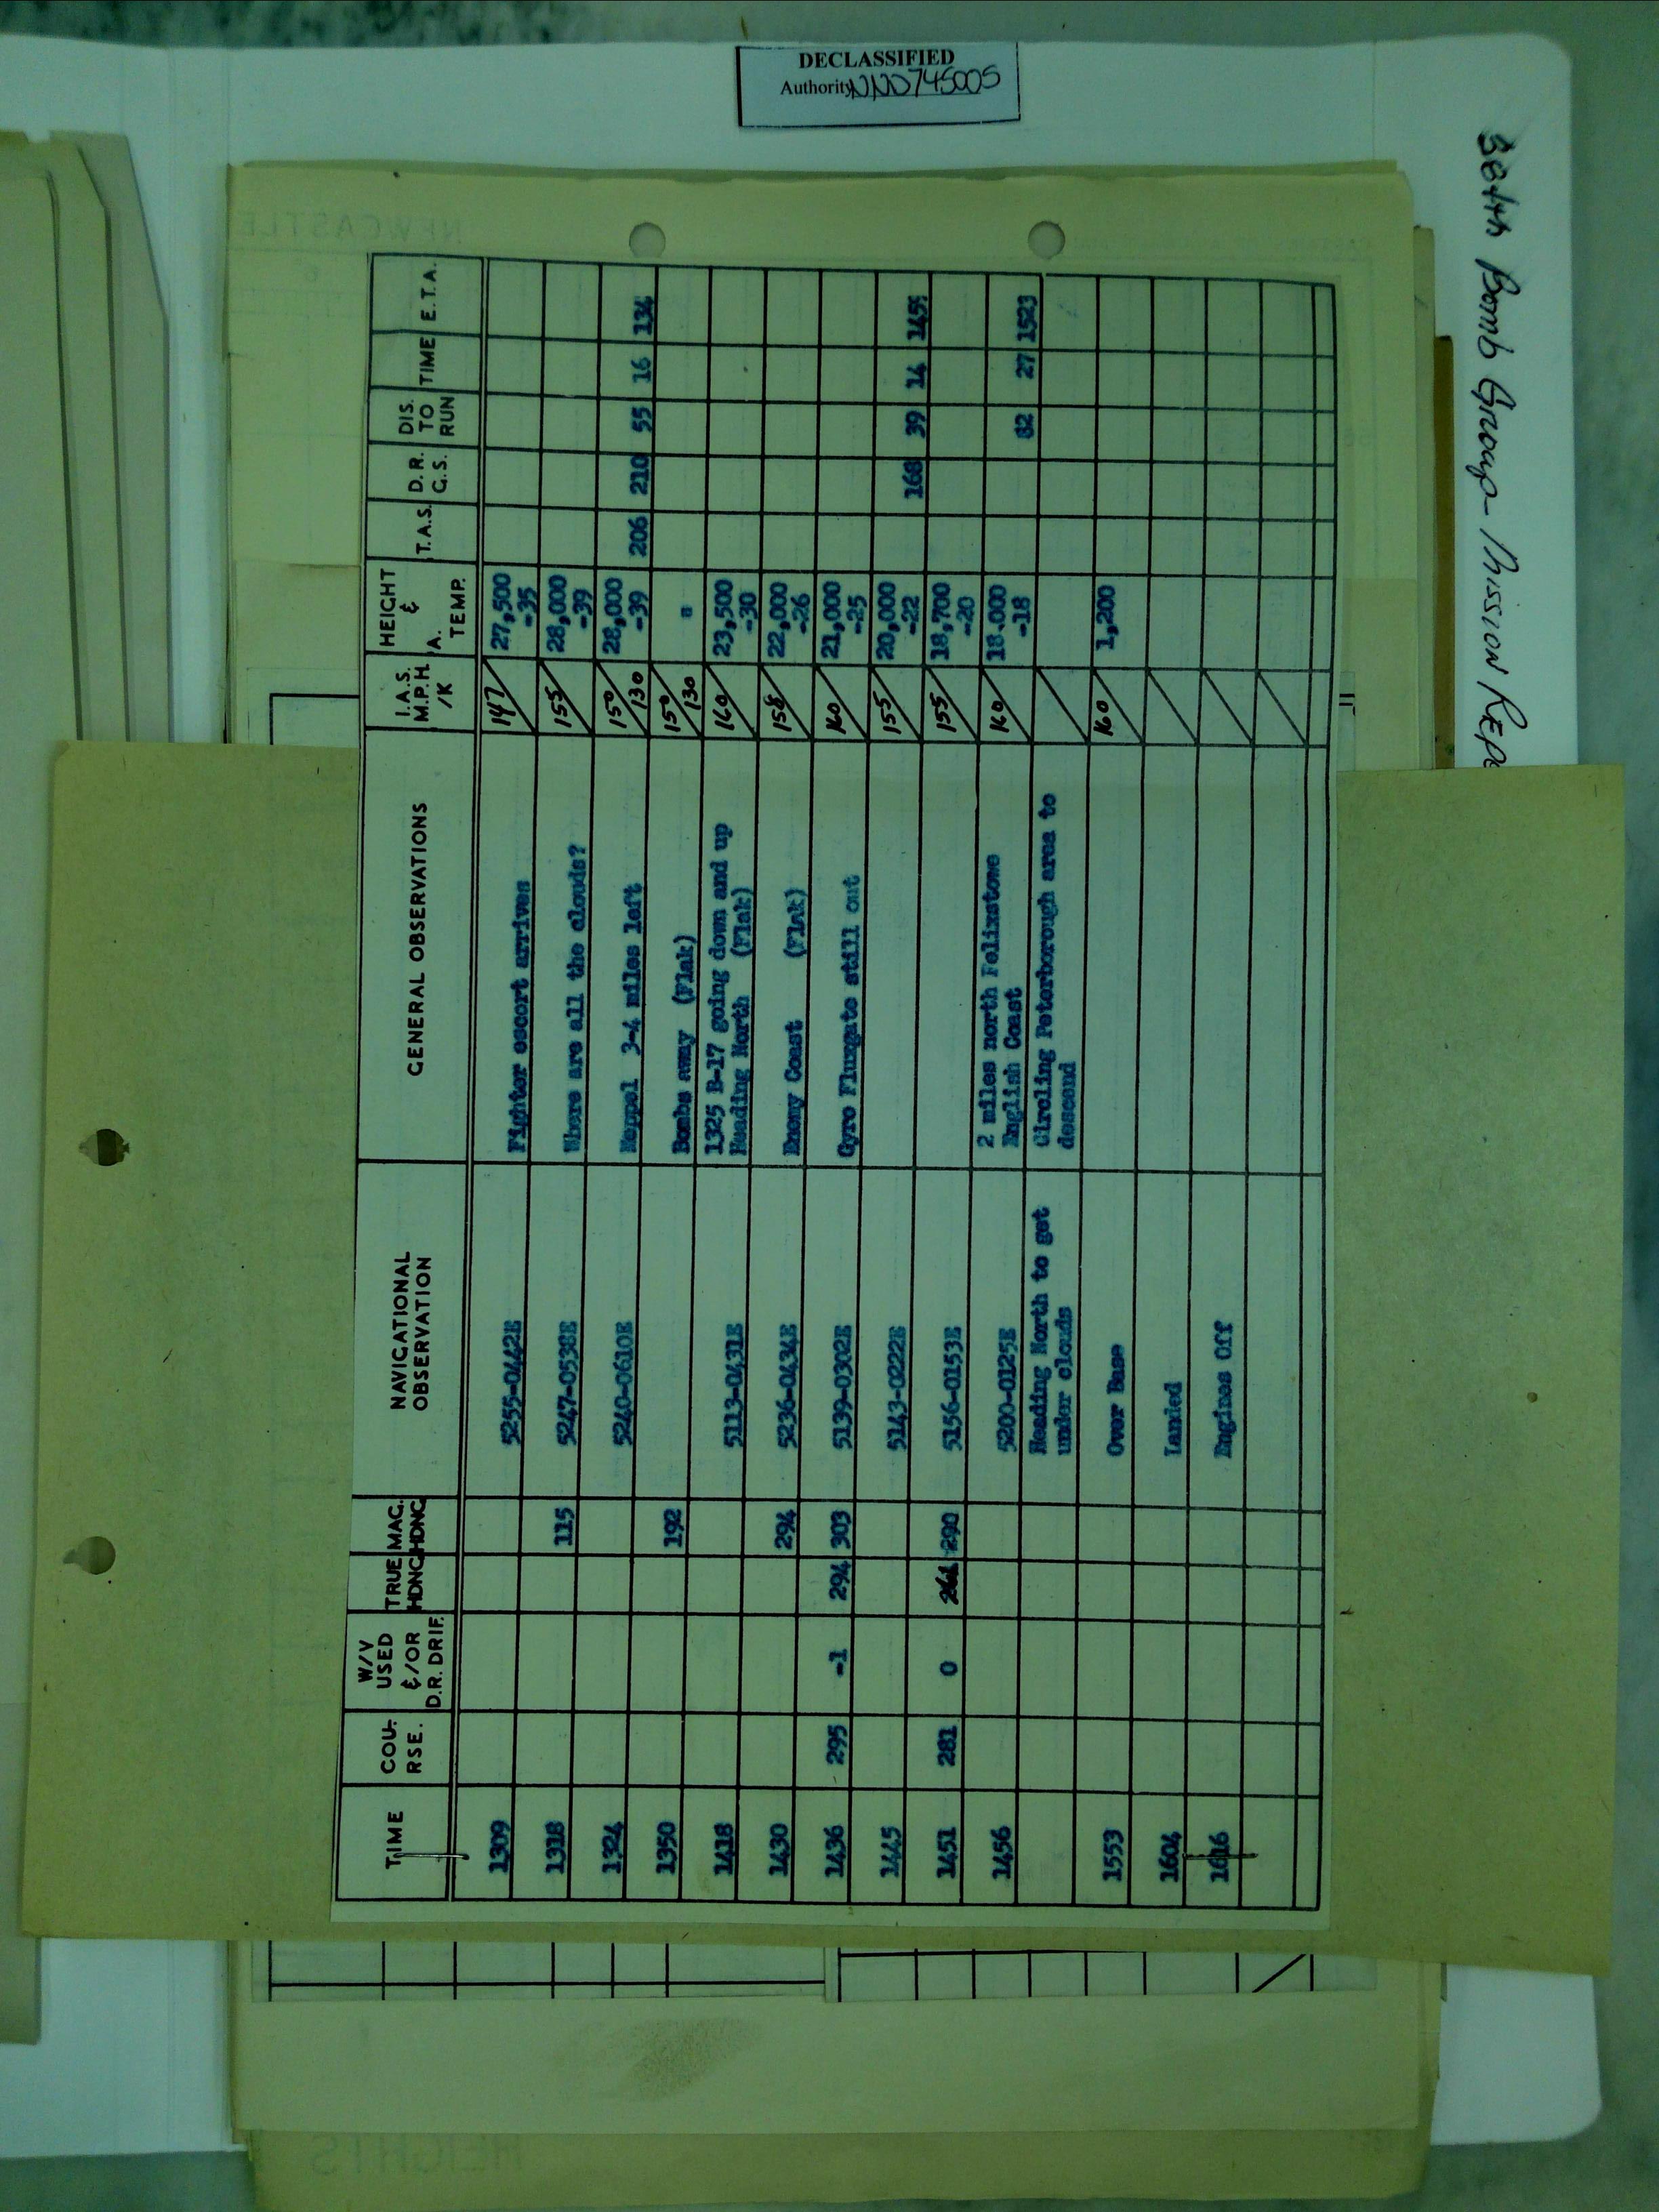 DECLASSIFIED
Authority NND745005
384th Bomb Group - Mission Repo
TIME COU-RSE. W/V USED &/OR D.R. DRIF. TRUE HDNG MAG. HDNG. NAVIGATIONAL OBSERVATION GENERAL OBSERVATIONS I.A.S. M.P.H. /K HEIGHT & A. TEMP. T.A.S. D.R. G.S. DIS. TO RUN TIME E.T.A.
1309 5255-0442E Fighter escort arrives 147 27,500 -35
1318 115 5247-0538E Where are all the clouds? 155 28,000 -39
1324 5240-0610E Meppel 3-4 miles left 150 130 28,000 -39 206 210 55 16 134
1350 192 Bombs away (Flak) 150 130 "
1418 5113-0431E 1325 B-17 going down and up 160 23,500 -30
Heading North (Flak)
1430 294 5236-0434E Enemy Coast (Flak) 158 22,000 -26
1436 295 -1 294 303 5139-0302E Gyro Fluxgate still out 160 21,000 -25
1445 5143-0222E 155 20,000 -22 168 39 14 1459
1451 281 0 290 5156-0153E 155 18,700 -20
1456 5200-0125E 2 miles north Felixstowe 160 18.000 -18 82 27 1523
English Coast
Heading North to get Circling Peterborough area to
under clouds descend
1553 Over Base 160 1,200
1604 Landed
1616 Engines Off
NEWCASTLE
HEIGHTS